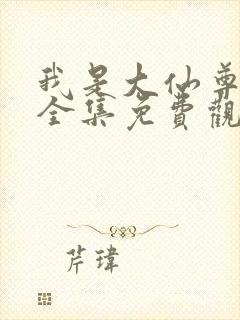 我是大仙尊
全集免費觀
芹瑋